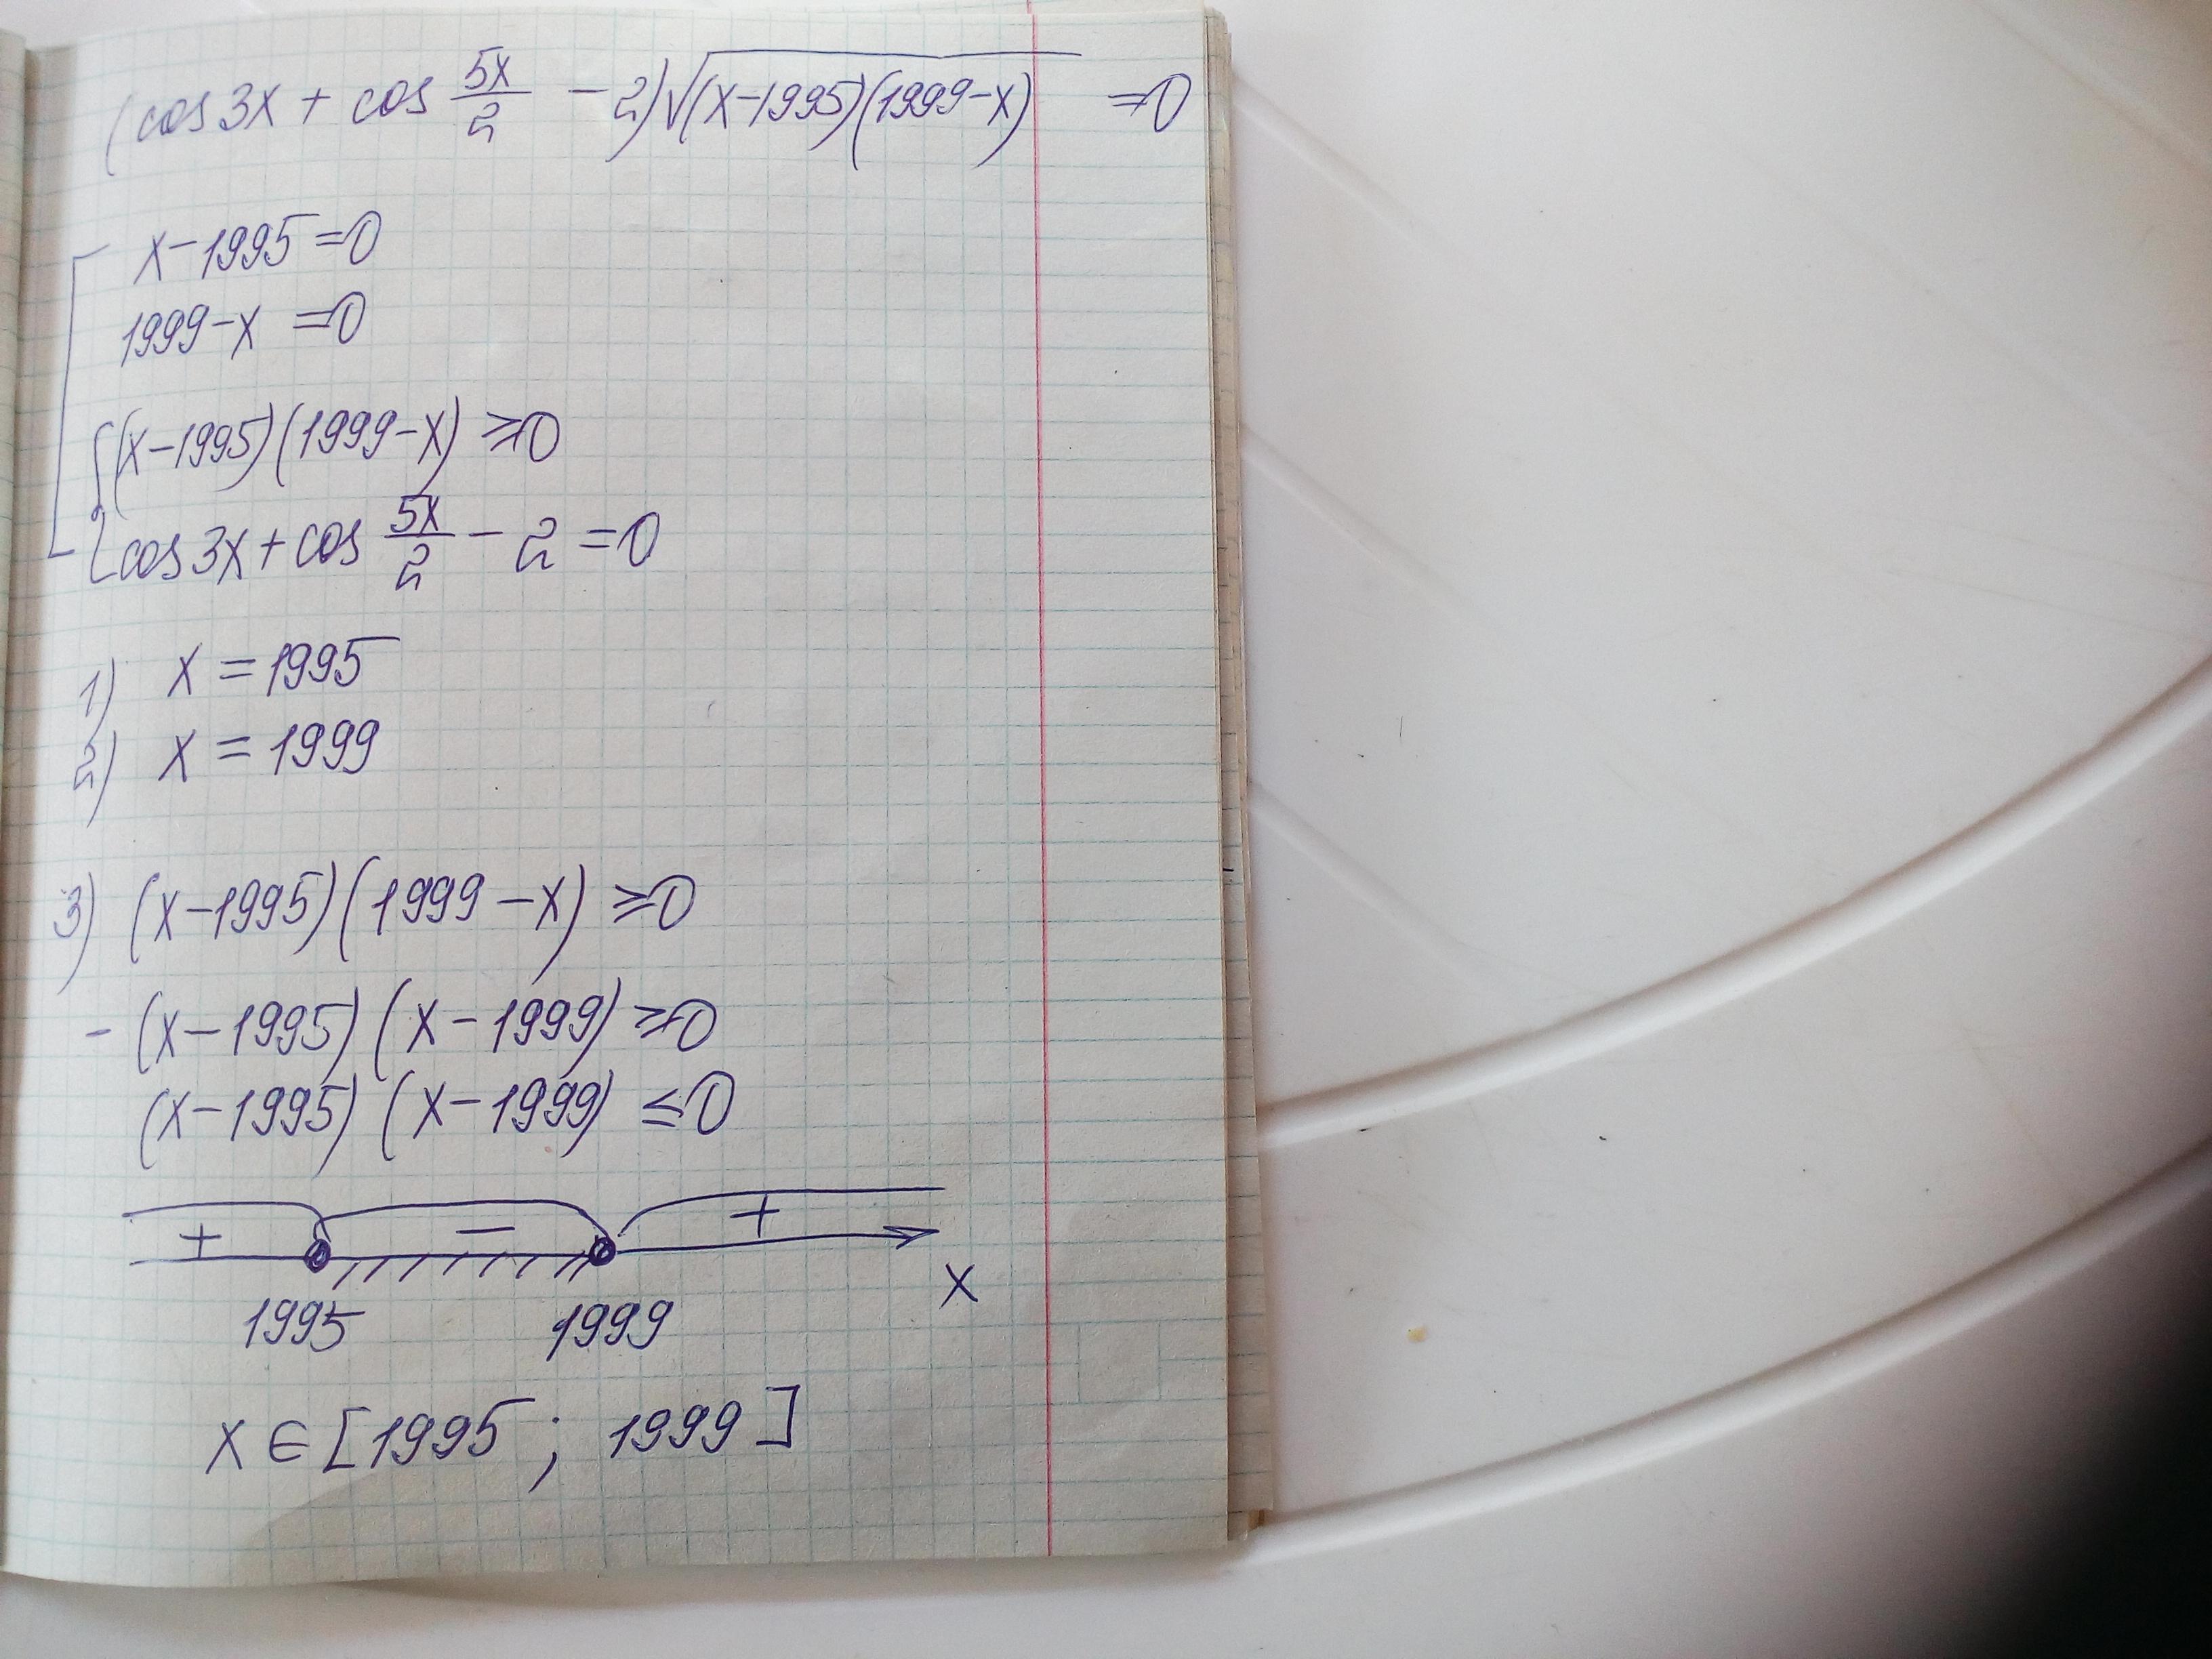 (cos 3x + cos 5x/2 - 2)√((x-1995)(1999-x)) = 0
x - 1995 = 0
1999 - x = 0
(x-1995)(1999-x) ≥ 0
cos 3x + cos 5x/2 - 2 = 0
1) x = 1995
2) x = 1999
3) (x-1995)(1999-x) ≥ 0
-(x-1995)(x-1999) ≥ 0
(x-1995)(x-1999) ≤ 0
+ - +
1995 1999 x
x ∈ [1995; 1999]